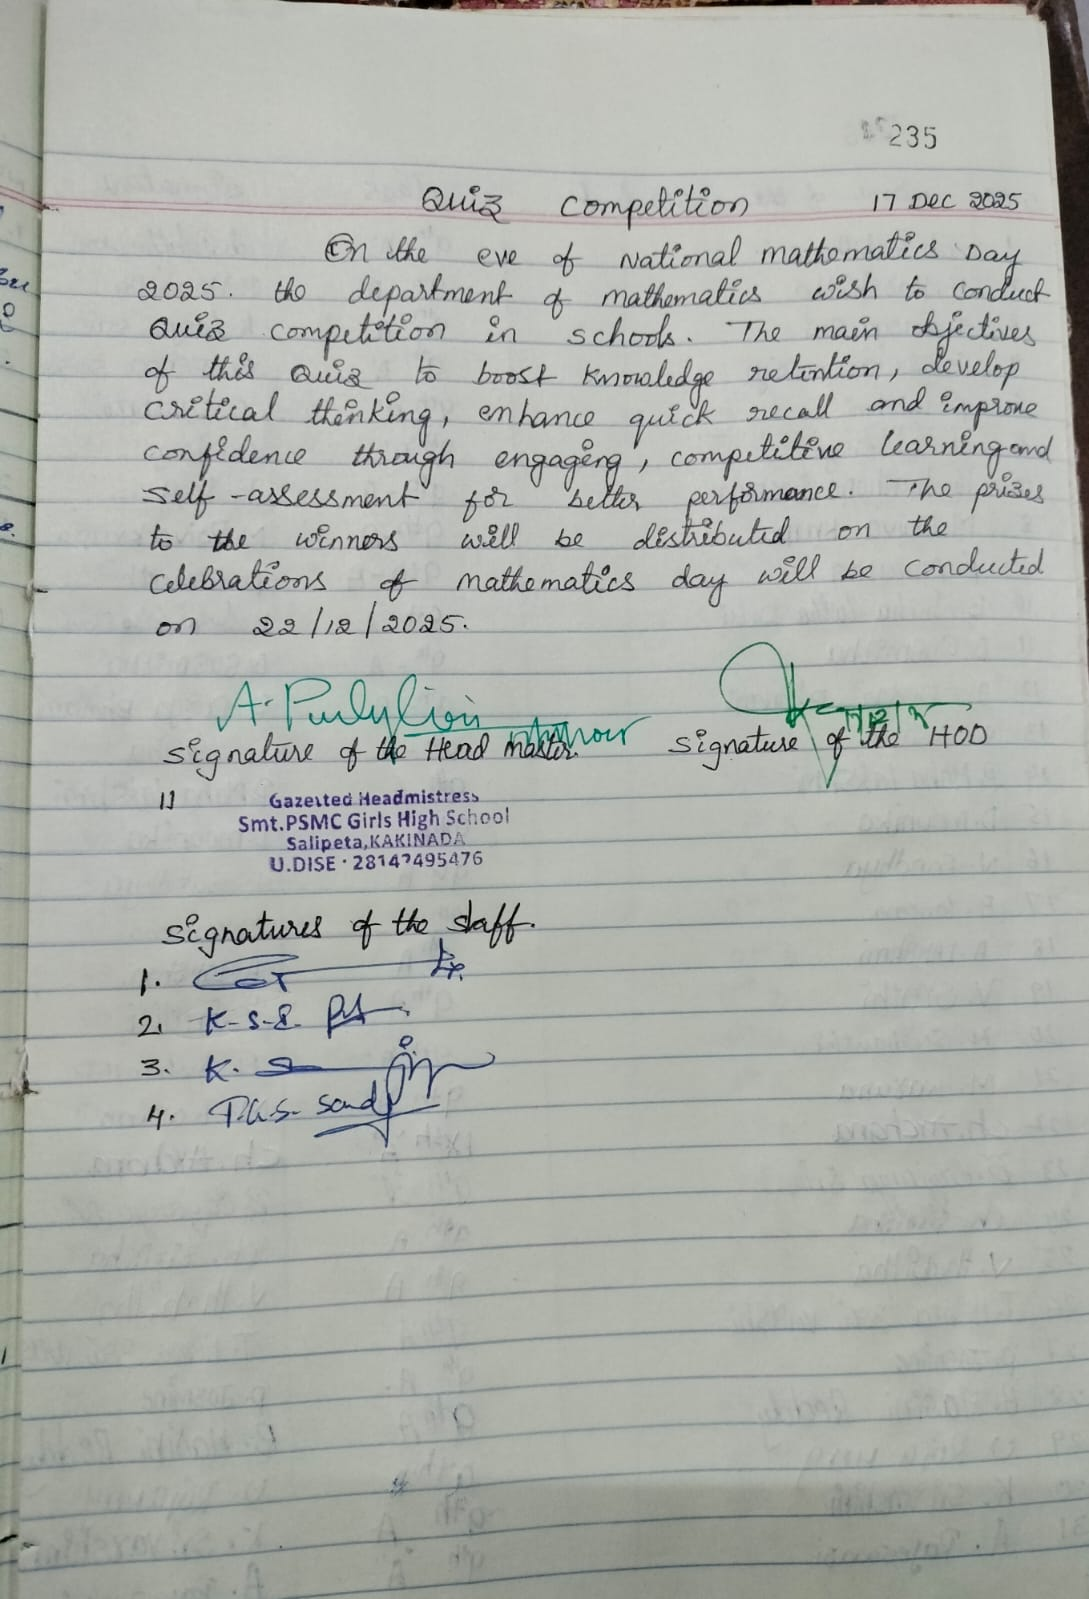 235
Quiz Competition 17 Dec 2025
On the eve of National mathematics Day
2025. the department of mathematics wish to conduct
Quiz competition in schools. The main objectives
of this Quiz to boost knowledge retention, develop
critical thinking, enhance quick recall and improve
confidence through engaging, competitive learning and
self-assessment for better performance. The prizes
to the winners will be distributed on the
celebrations of mathematics day will be conducted
on 22/12/2025.
Signature of the Head master. Signature of the HOD
Gazetted Headmistress
Smt.PSMC Girls High School
Salipeta,KAKINADA
U.DISE
Signatures of the staff.
1.
2. K-S-
3. K.
4.